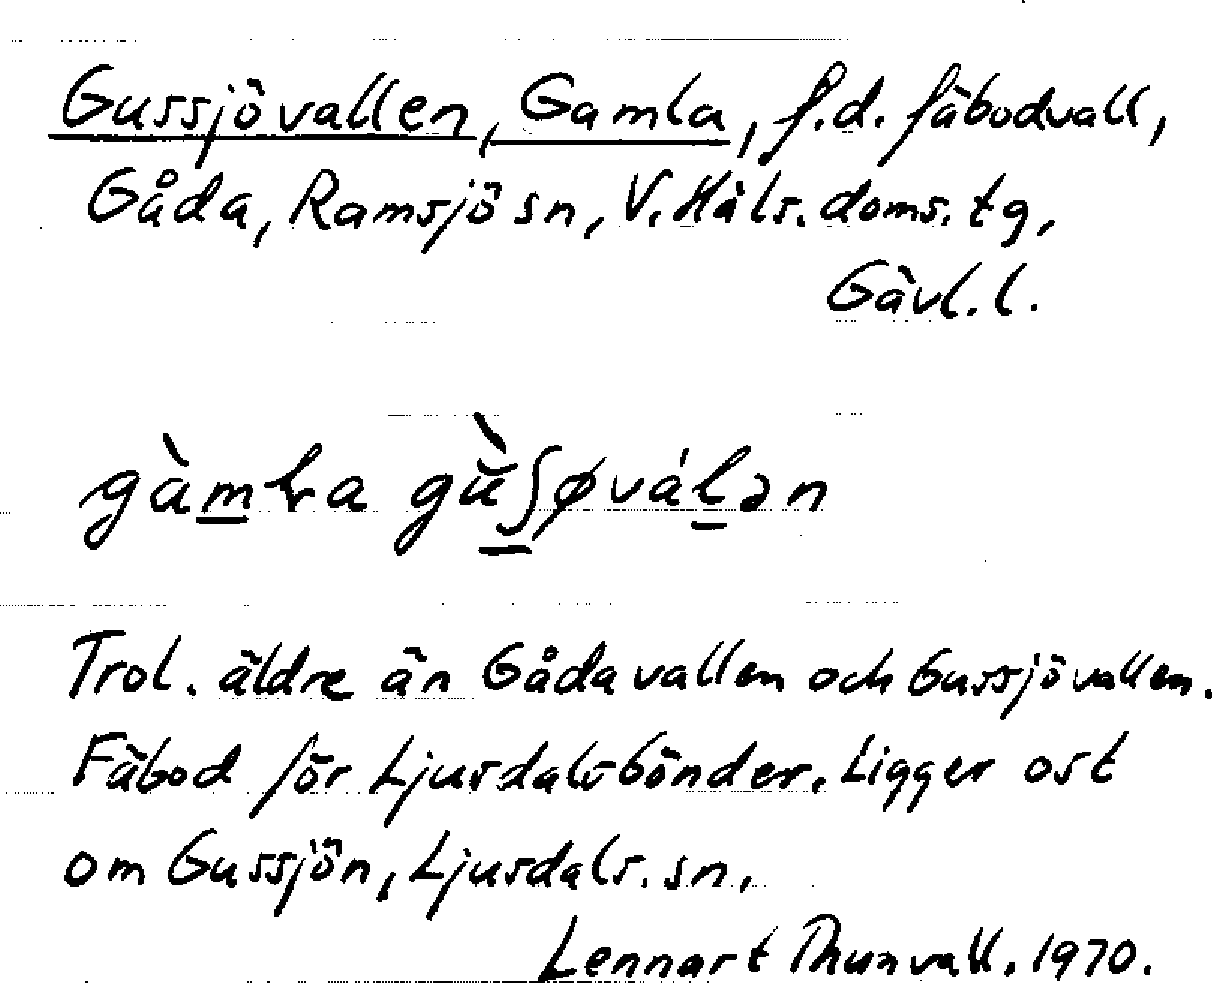 Gussjövallen, Gamla, f.d. fäbodvall,
Gåda, Ramsjö sn, V. Häls. doms. tg,
Gävl. l.
gàmla gùʃøválən
Trol. äldre än Gådavallen och Gussjövallen.
Fäbod för Ljusdalsbönder. Ligger ost
om Gussjön, Ljusdals. sn.
Lennart Thunvall. 1970.